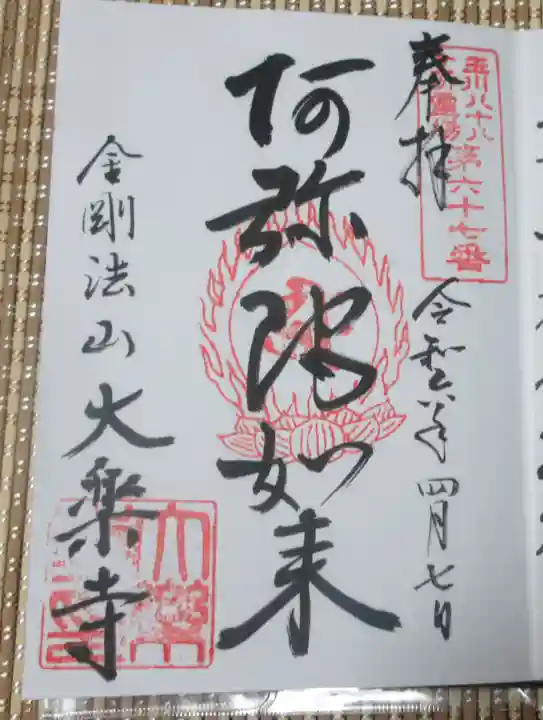 奉拝
玉川八十八
ヶ所霊場第六十七番
令和六年四月七日
阿弥陀如来
金剛法山大楽寺